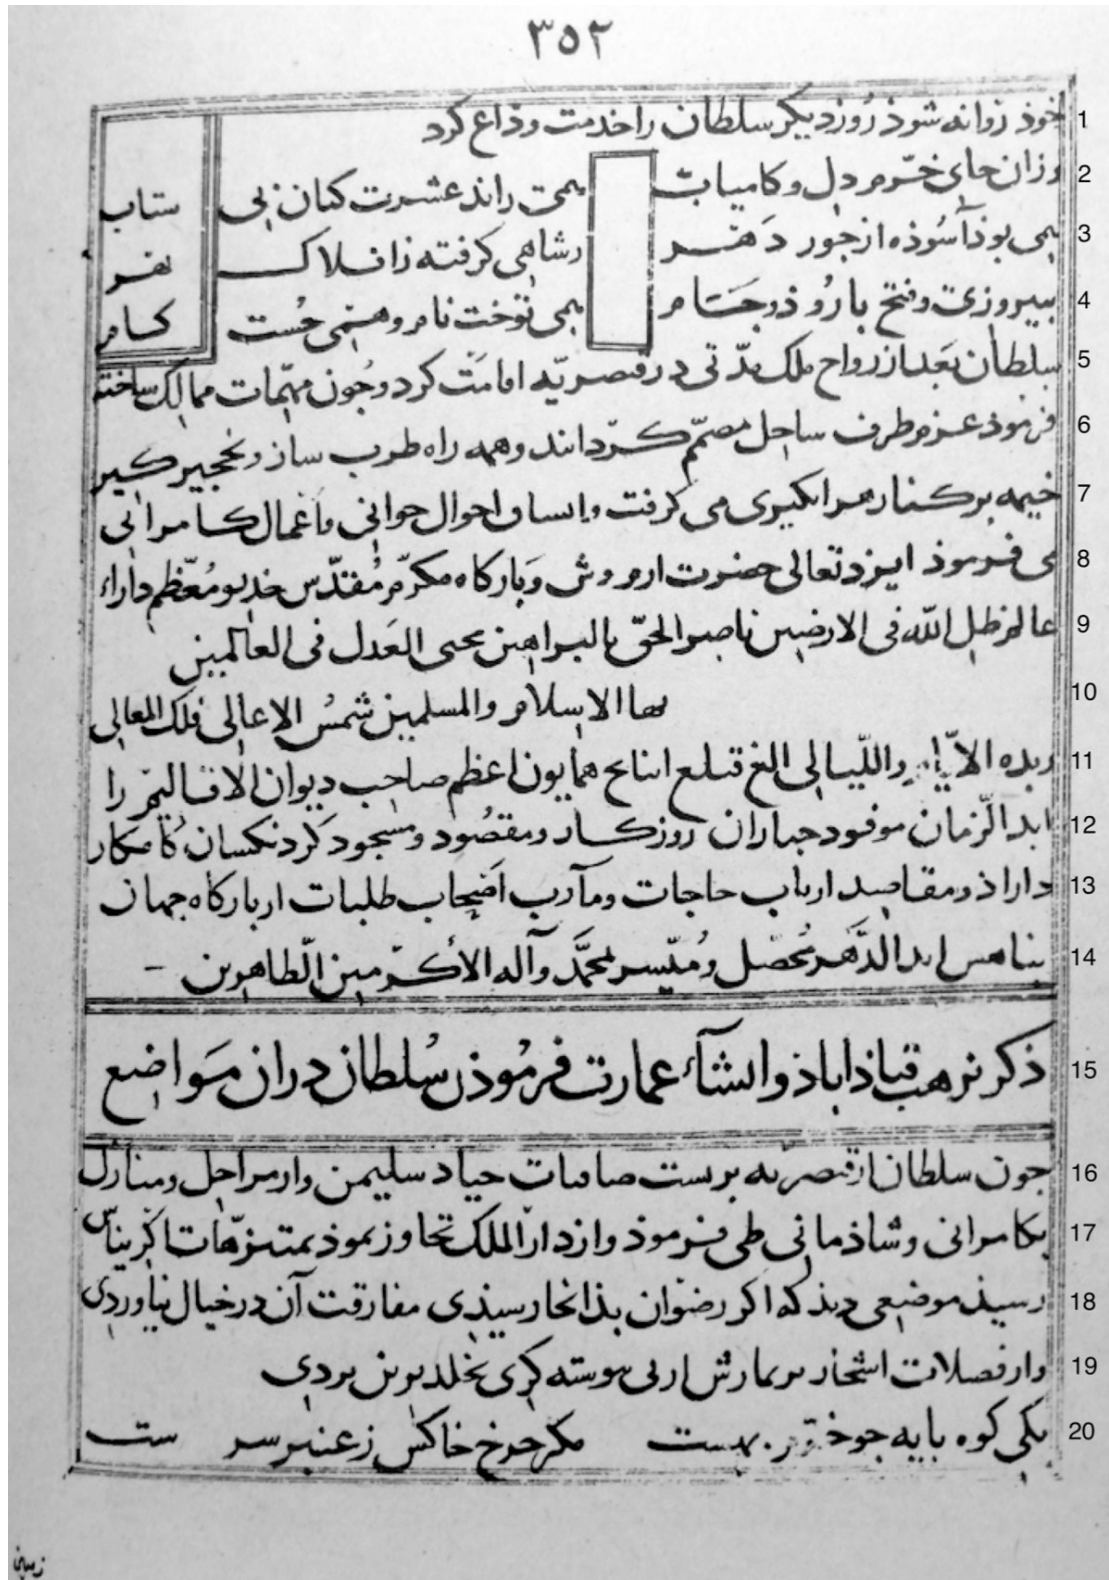 ۳۵۲
خوذ روانه شوذ روز دیکر سلطان را خدمت وداع کرد 1
وزان جای خرّم دل و کامیاب همی راند عشرت کنان بی ستاب 2
همی بوذ آسوذه از جور دهر رشاهی کرفته زافلاک بهر 3
ببیروزی و فتح با روذ و جام همی توخت نام و همی جُست کام 4
سلطان بعد از رواح ملک مدّتی در قیصریّه اقامت کرد و جون مهمّات ممالک ساخته 5
فرموذ عزم طرف ساحل مصمّم کردانید و همه راه طرب ساز و نخجیر کیر 6
خیمه بر کنار هر ابکیری می کرفت و احوال جوانی و اغمال کامرانی 7
می فرموذ ایزد تعالی حضرت و بارکاه مکرّم مُقدّس خدیو مُعظّم دارای 8
عالم ظل اللّه فی الارضین ناصر الحقّ بالبراهین محیی العَدل فی العالمین 9
بها الاسلام والمسلمین شمسُ الاعالی فلک المعالی 10
زبده الایّام واللّیالی الغ قتلغ اینانج همایون اعظم صاحب دیوان الاقالیم را 11
ابد الزّمان جباران روزکار و مقصُود و مسجود کردنکسان کامکار 12
داراذ و مقاصد ارباب حاجات و مآرب اصحاب طلبات از بارکاه جهان 13
بناهس ابد الدَّهر مُحصّل و مُیسّر بمحمّد وآله الاکرمین الطّاهرین 14
ذکر قباذاباذ و انشآء عمارت فرموذن سُلطان دران مَواضع 15
جون سلطان از قیصریّه بر بست صافنات جیاد سلیمن وار مراحل و منازل 16
بکامرانی و شاذمانی طی فرموذ و از دار الملک تجاوز نموذ بمتنزّهات اکریناس 17
رسیذ موضعی دیذ که اکر رضوان بذانجا رسیذی مفارقت آن در خیال نیاوردی 18
و از فضلات اشجار ببوسته بخلد برین بردی 19
یکی کوه بایه بهست مکر جرخ خاکس ز عنبر سرست 20